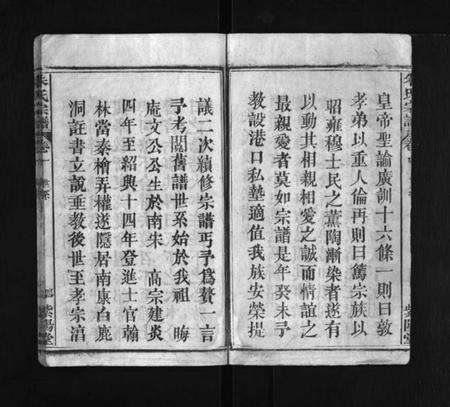 朱氏宗譜
皇帝聖諭廣訓十六條一則曰敦
孝弟以重人倫再則曰篤宗族以
昭雍穆士民之薰陶漸染者遂有
以動其相親相愛之誠而情誼之
最親愛者莫如宗譜是年癸未予
教設港口私塾適值我族安榮提
議二次續修宗譜丐予為贅一言
予考閱舊譜世系始於我祖 晦
庵文公公生於南宋 高宗建炎
四年至紹興十四年登進士官翰
林當秦檜弄權遂隱居南康白鹿
洞註書立説垂教後世至孝宗湻
朱氏宗譜
卷一
紫陽堂